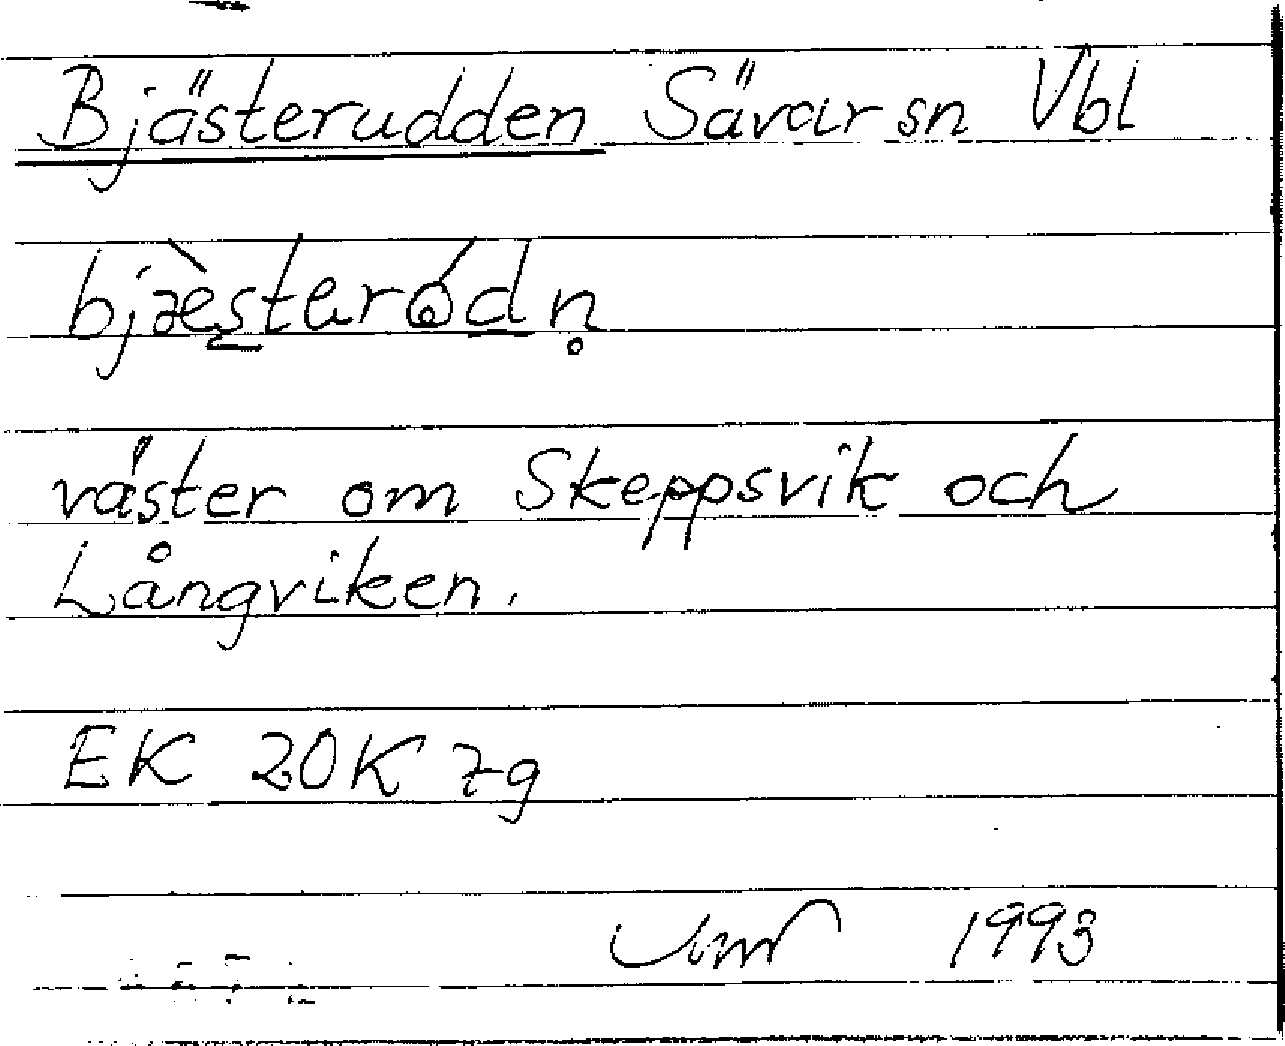 Bjästerudden Sävar sn Vbl
bjæ̀steródn̥
väster om Skeppsvik och
Långviken.
EK 20K 7g
1993